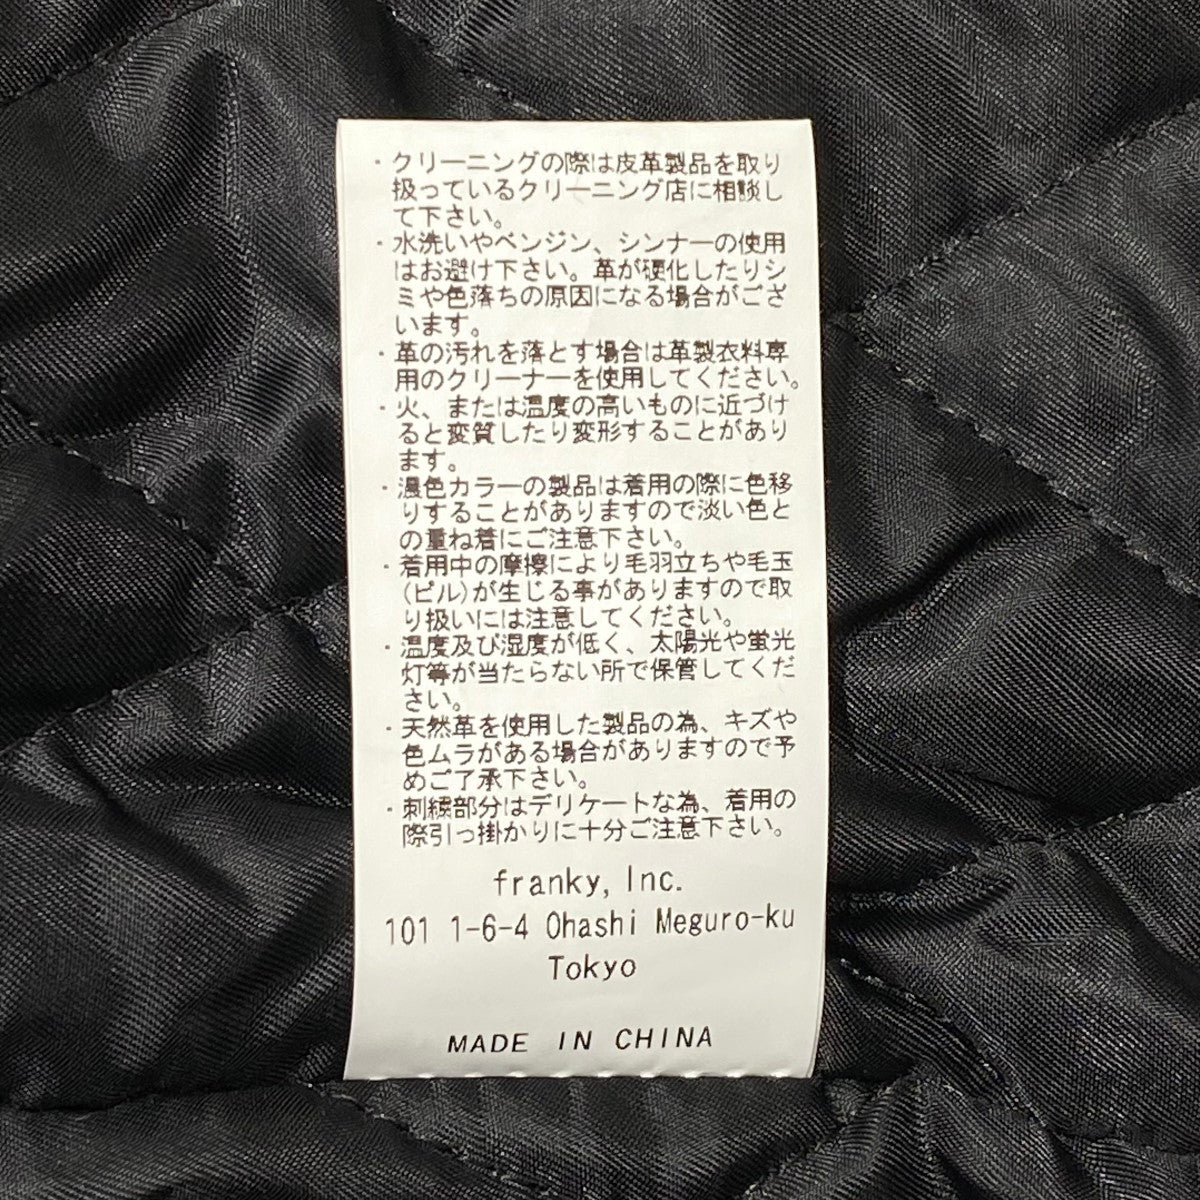 ・クリーニングの際は皮革製品を取り
扱っているクリーニング店に相談し
て下さい。
・水洗いやベンジン、シンナーの使用
はお避け下さい。革が硬化したりシ
ミや色落ちの原因になる場合がござ
います。
・革の汚れを落とす場合は革製衣料専
用のクリーナーを使用してください。
・火、または温度の高いものに近づけ
ると変質したり変形することがあり
ます。
・濃色カラーの製品は着用の際に色移
りすることがありますので淡い色と
の重ね着にご注意下さい。
・着用中の摩擦により毛羽立ちや毛玉
(ピル)が生じる事がありますので取
り扱いには注意してください。
・温度及び湿度が低く、太陽光や蛍光
灯等が当たらない所で保管してくだ
さい。
・天然革を使用した製品の為、キズや
色ムラがある場合がありますので予
めご了承下さい。
・刺繍部分はデリケートな為、着用の
際引っ掛かりに十分ご注意下さい。
franky, Inc.
101 1-6-4 Ohashi Meguro-ku
Tokyo
MADE IN CHINA